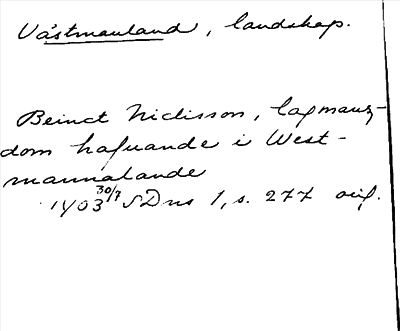 Västmanland, landskap.
Beinct Niclisson, lagmanz-
dom hafuande i West-
mannalande
1403 30/7 SDns 1, s. 277 orig.